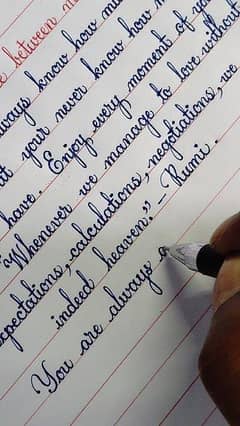 e between m
ways know how mu
ut your never know how m
have. Enjoy every moment of yo
"Whenever we manage to love without
expectations, calculations, negotiations, we
indeed heaven." - Rumi.
You are always